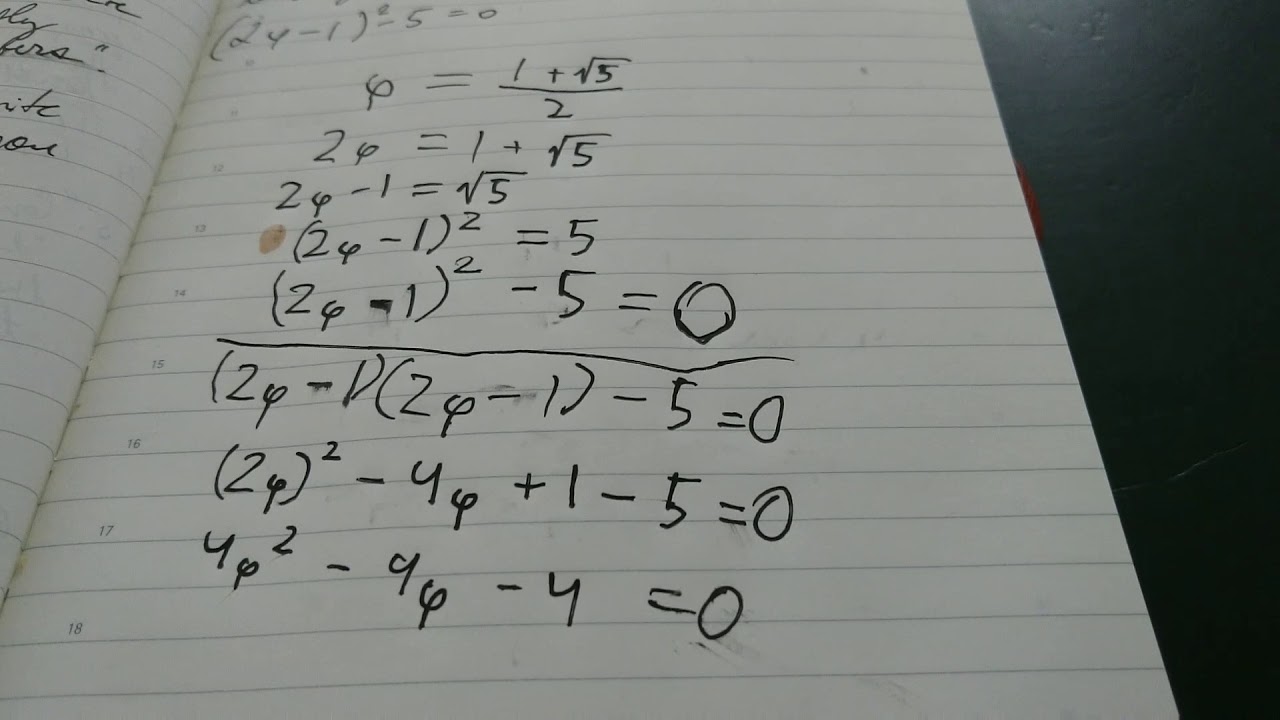 (2φ-1)²-5=0
φ = (1+√5)/2
2φ = 1 + √5
12
2φ-1=√5
13
(2φ-1)² = 5
14
(2φ-1)² -5=0
15
(2φ-1)(2φ-1)-5=0
16
(2φ)² - 4φ +1-5=0
17
4φ² - 4φ -4 =0
18